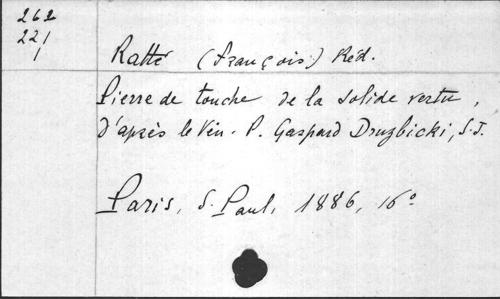 262
221
1
Ratté (François) Réd.
Pierre de touche de la solide vertu,
d'après le Vén. P. Gaspard Druzbicki, S.J.
Paris, S. Paul, 1886, 16°